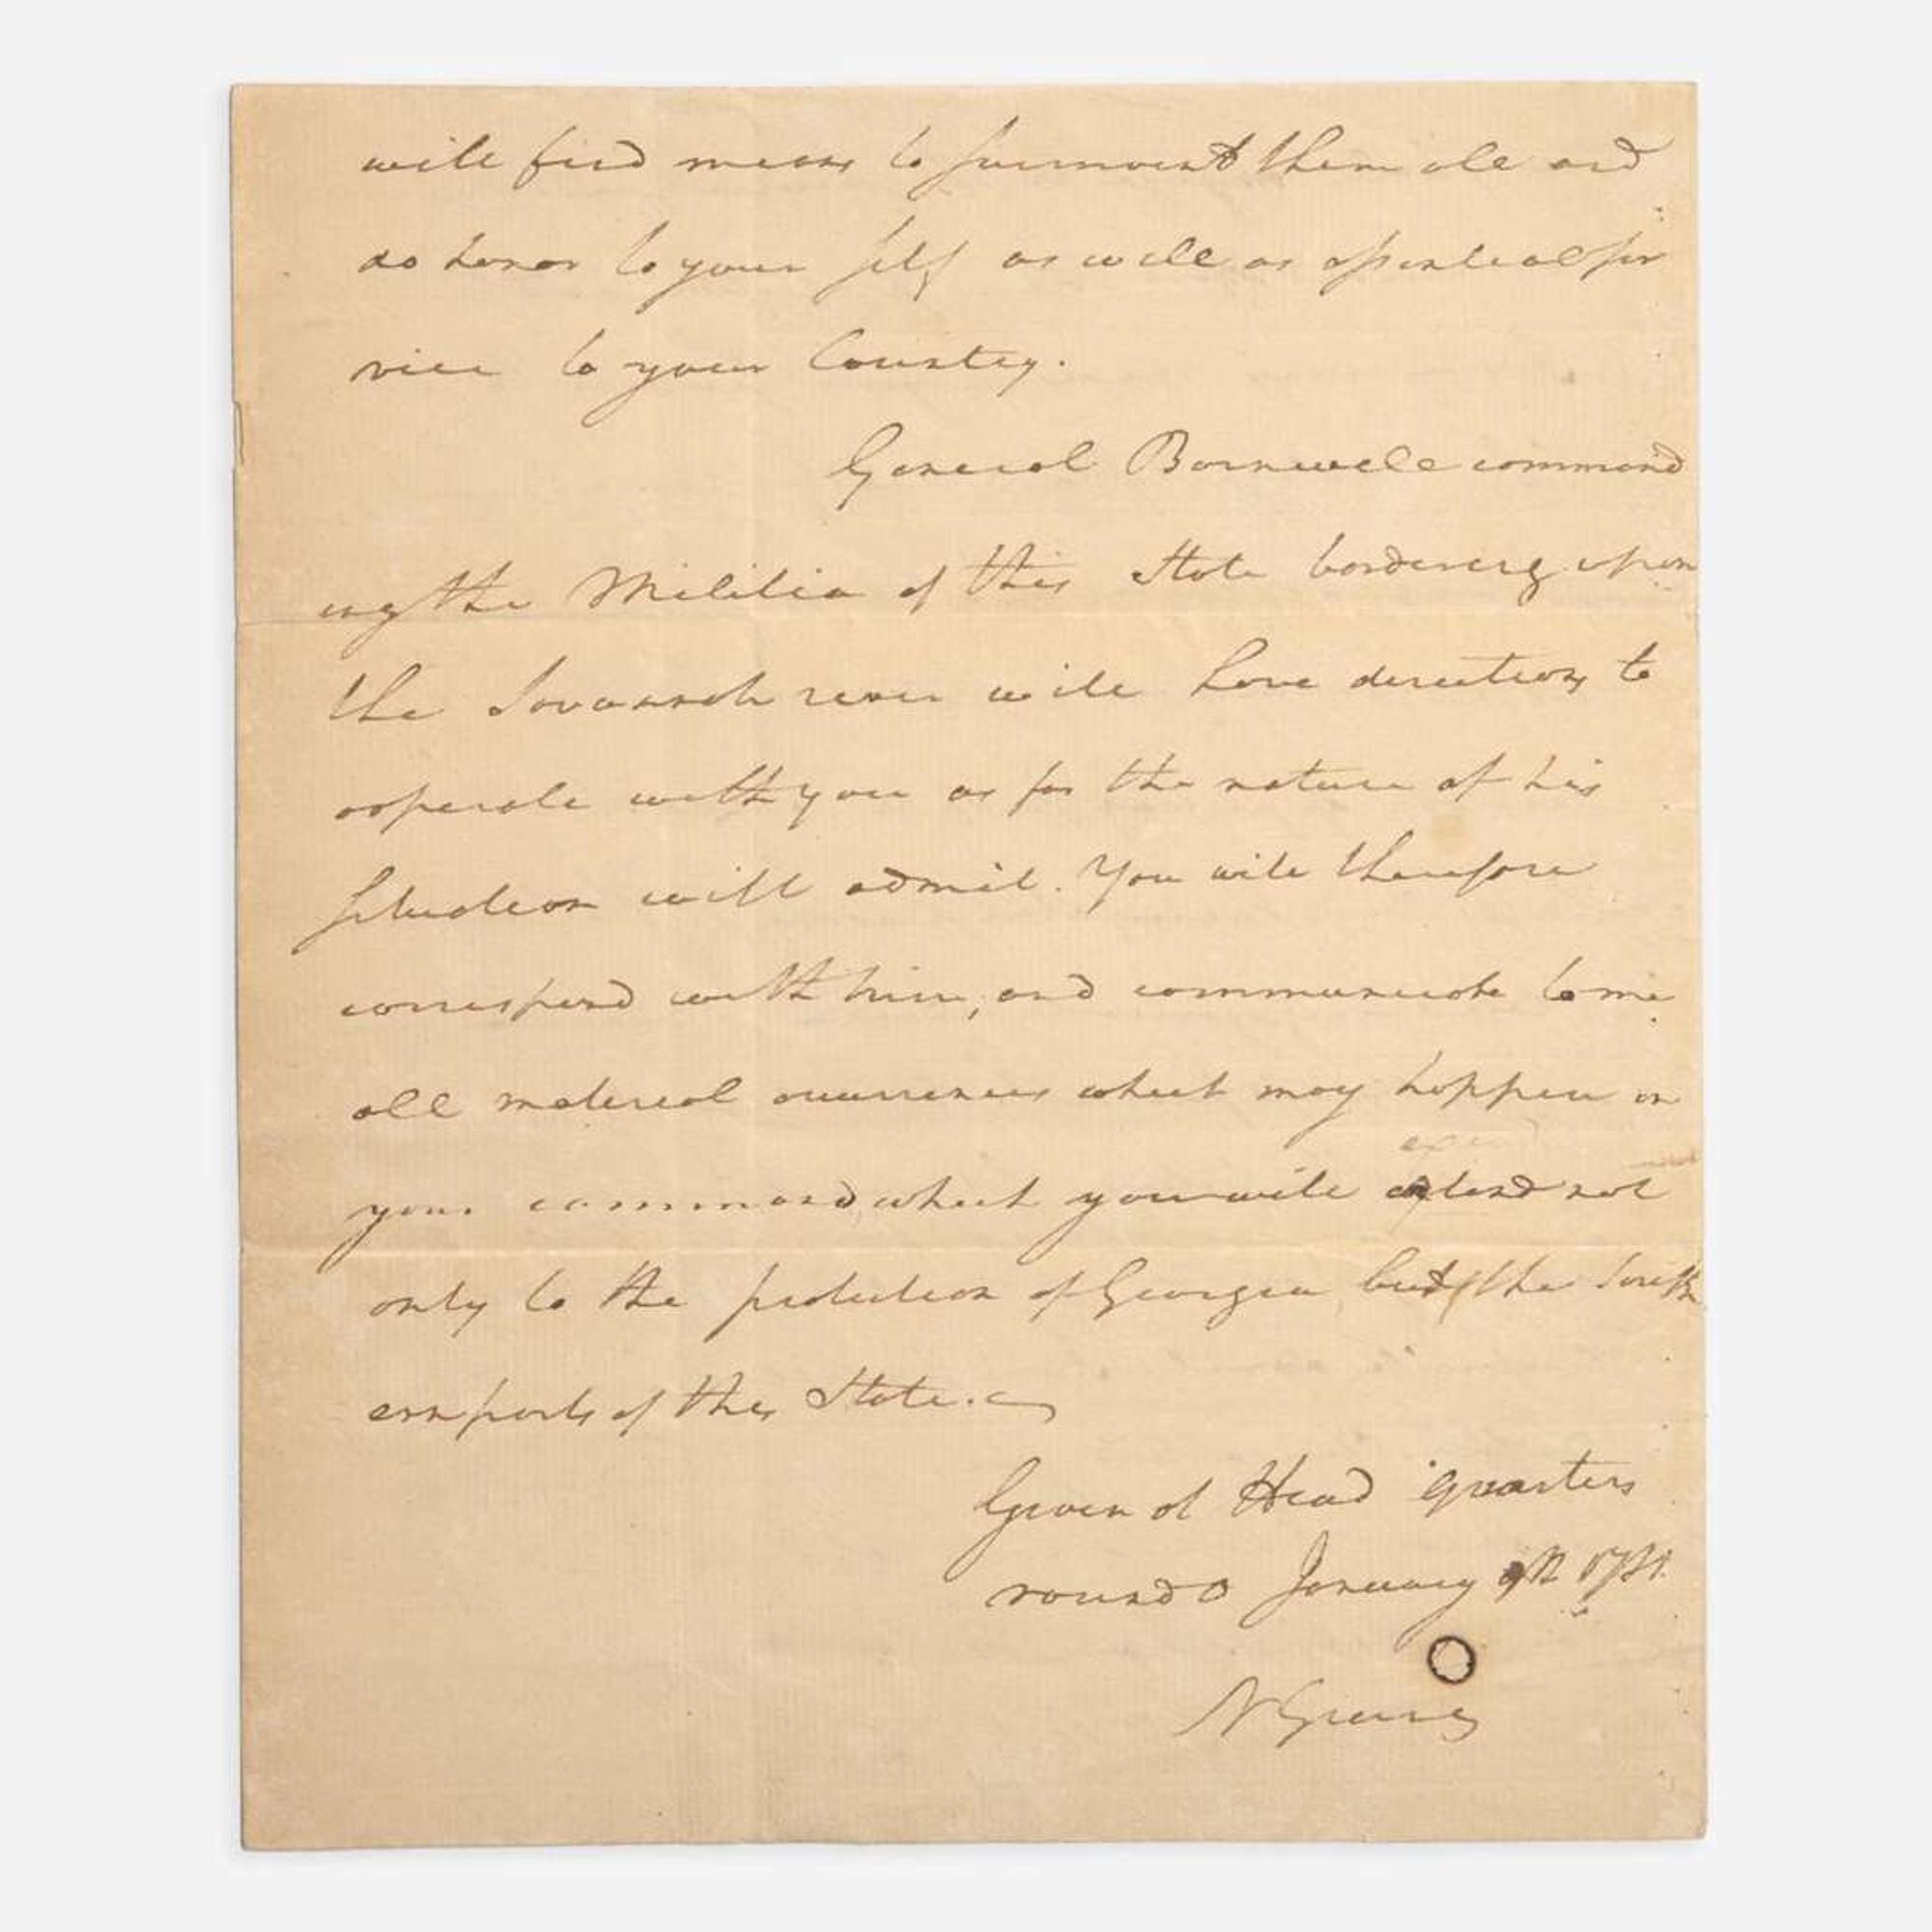 will find means to surmount them all and
do honor to your self as well as essential ser
vice to your Country.
General Barnwell command
ing the Militia of this State bordering upon
the Savannah river will have directions to
cooperate with you as far the nature of his
situation will admit. You will therefore
correspond with him, and communicate to me
all material occurrences which may happen in
your command which you will extend not
only to the protection of Georgia but the South
ern parts of this State.
Given at Head quarters
round O January 9th
N Greene